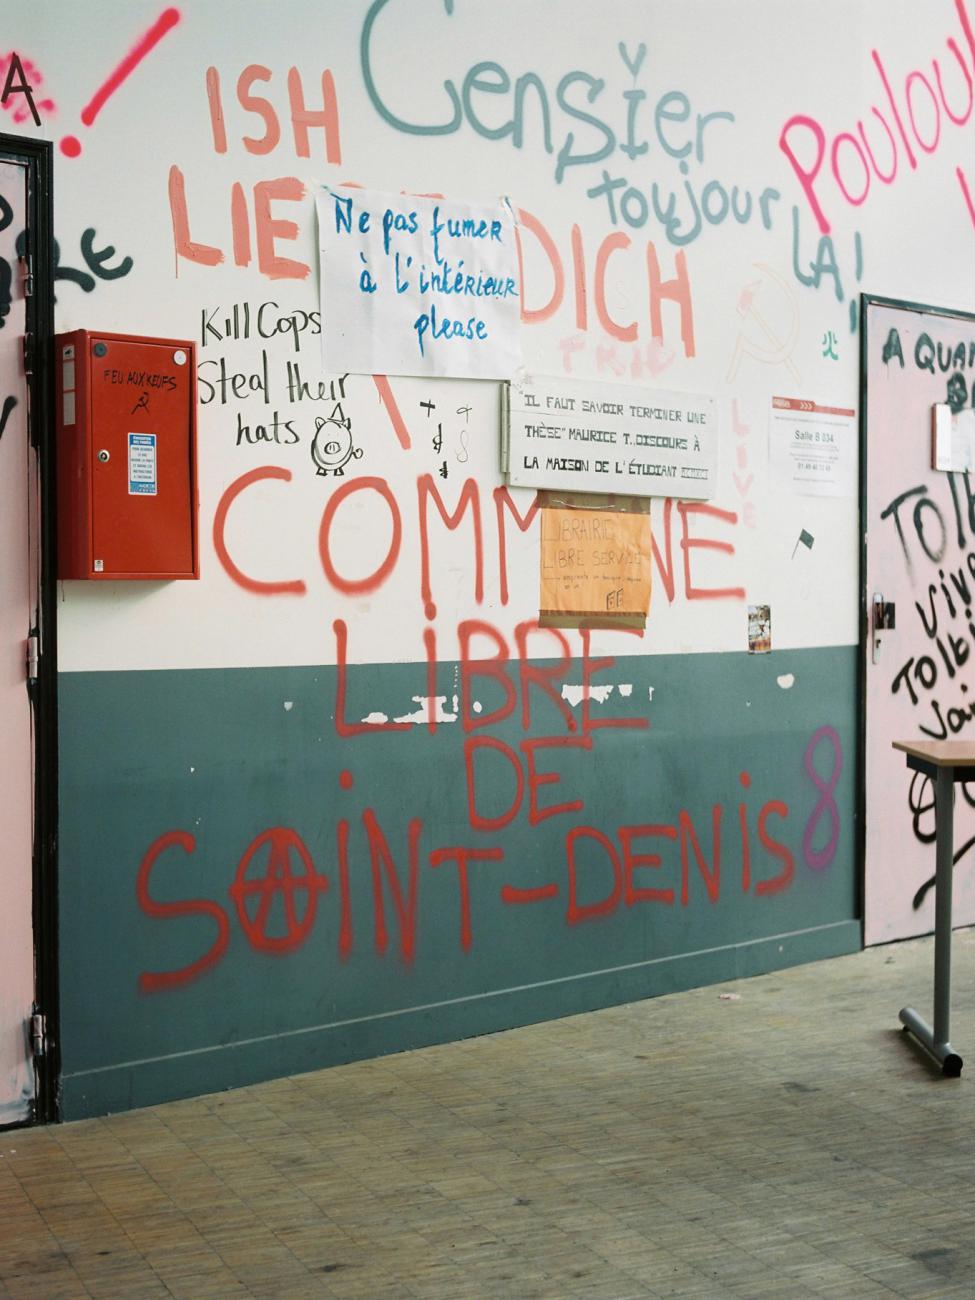 A
!
ISH
LIE
DICH
Censier
toujour
LA!
Poulou
Ne pas fumer
à l'intérieur
please
Kill Cops
Steal their
hats
FEU AUX KEUFS
"IL FAUT SAVOIR TERMINER UNE
THÈSE" MAURICE T., DISCOURS À
LA MAISON DE L'ÉTUDIANT
Salle B 034
LIBRAIRIE
LIBRE SERVICE
COMM NE
LiBRE
DE
SAiNT-DENiS 8
LiVE
A QUAN
TOlb
ViVe
Tolbi